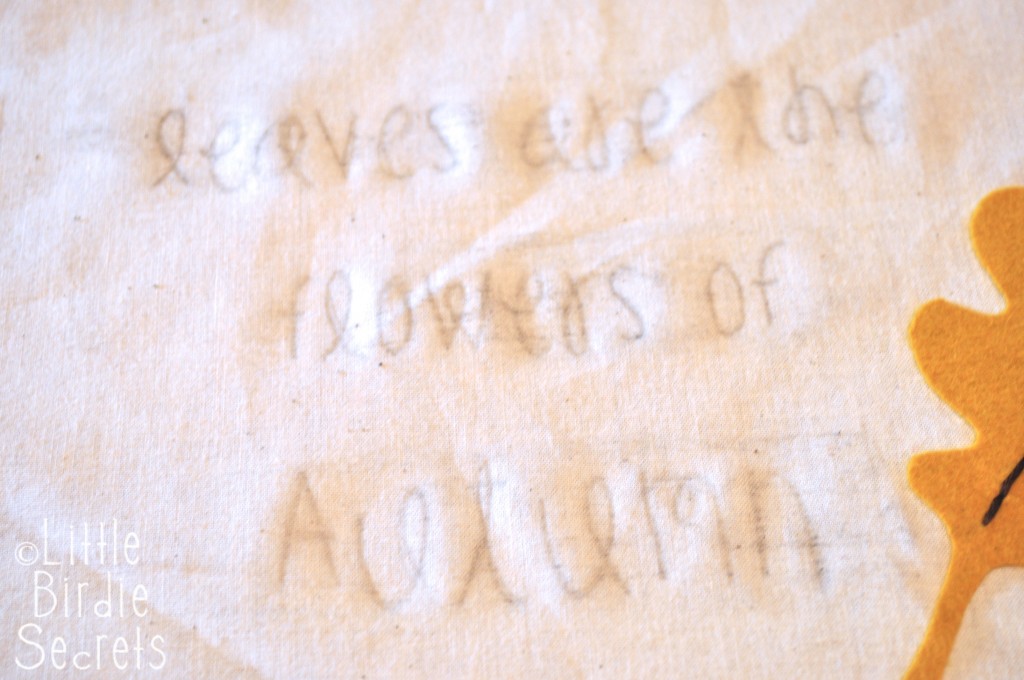 leaves are the
flowers of
Autumn
©Little
Birdie
Secrets